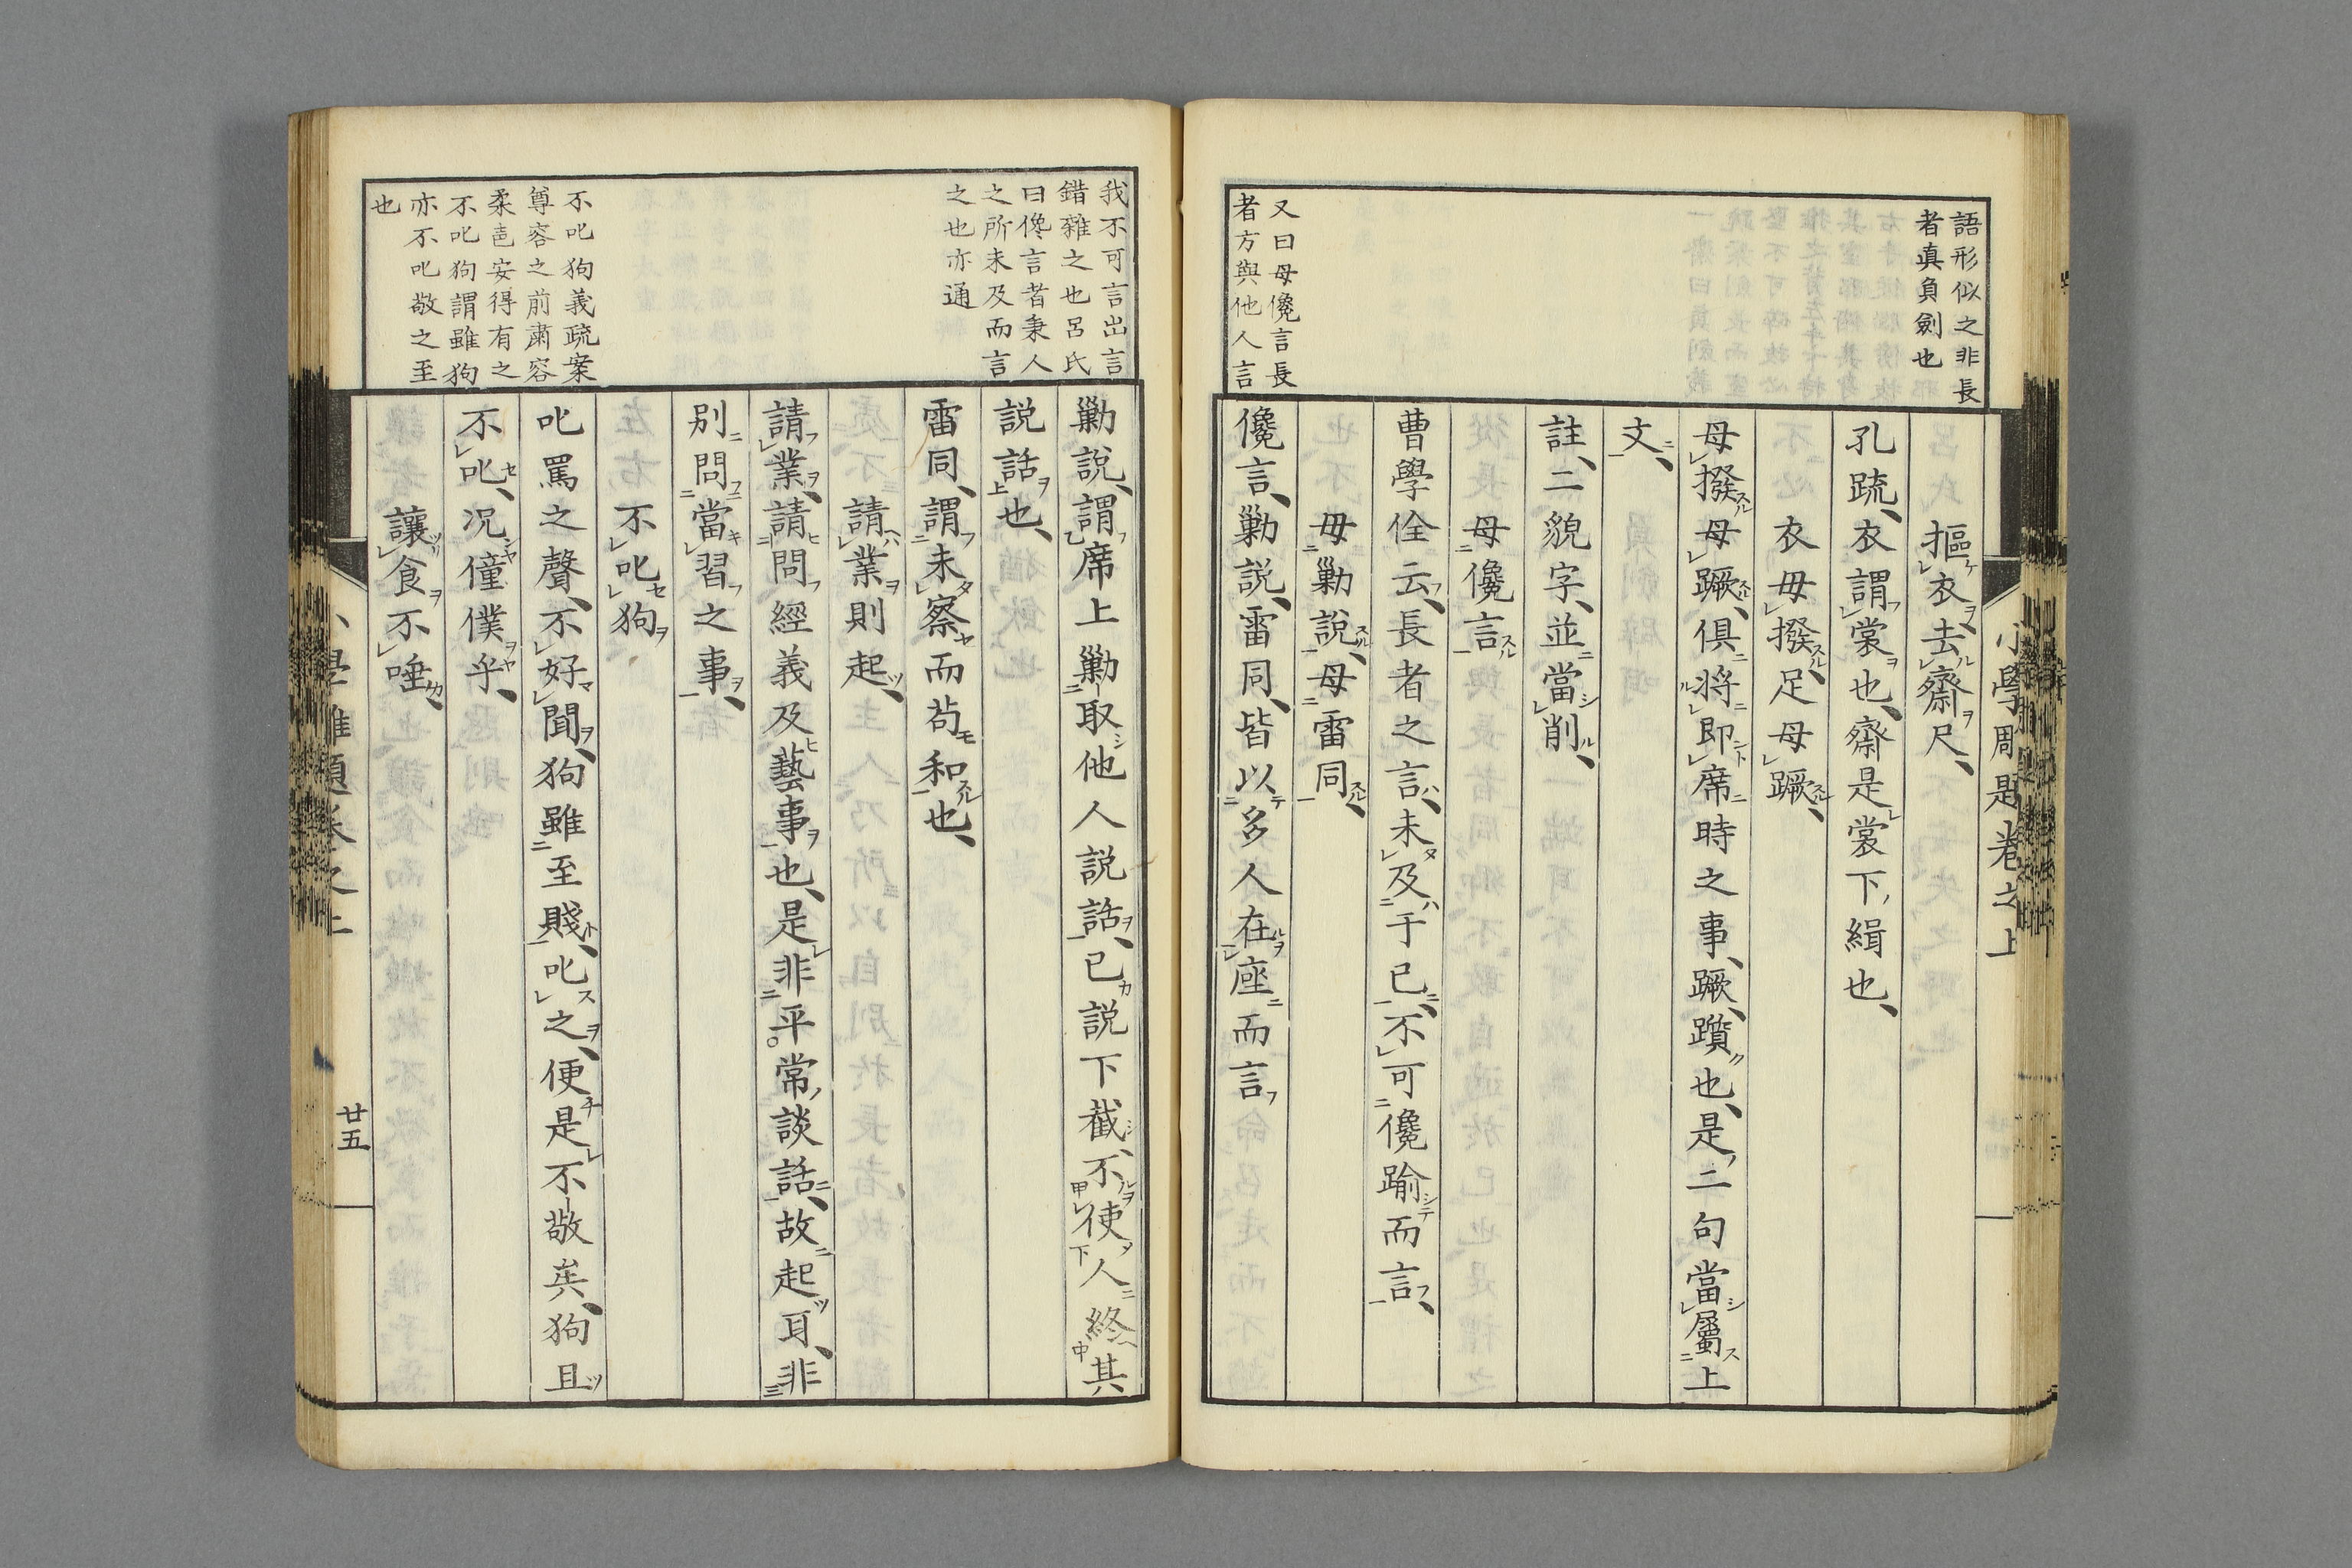 小學周是卷之上
語形似之非長
者真負劍也
又曰毋儳言長
者方與他人言
摳衣去齋尺
孔疏衣謂裳也齋是裳下緝也
衣毋撥足毋蹶
毋撥毋蹶俱將即席時之事蹶躓也是二句當屬上
文
註二貌字並當削
毋儳言
曹學佺云長者之言未及于已不可儳踰而言
毋勦說毋雷同
儳言勦説雷同皆以多人在座而言
我不可言出言
錯雜之也呂氏
曰儳言者秉人
之所未及而言
之也亦通
不叱狗義疏案
尊容之前肅容
柔色安得有之
不叱狗謂雖狗
亦不叱敬之至
也
勦說謂席上勦取他人説話已説下截不使人終其
説話也
雷同謂未察而茍和也
請業則起
請業請問經義及藝事也是非平常談話故起耳非
別問當習之事
不叱狗
叱罵之聲不好聞狗雖至賤叱之便是不敬矣狗且
不叱况僮僕乎
讓食不唾
廿五